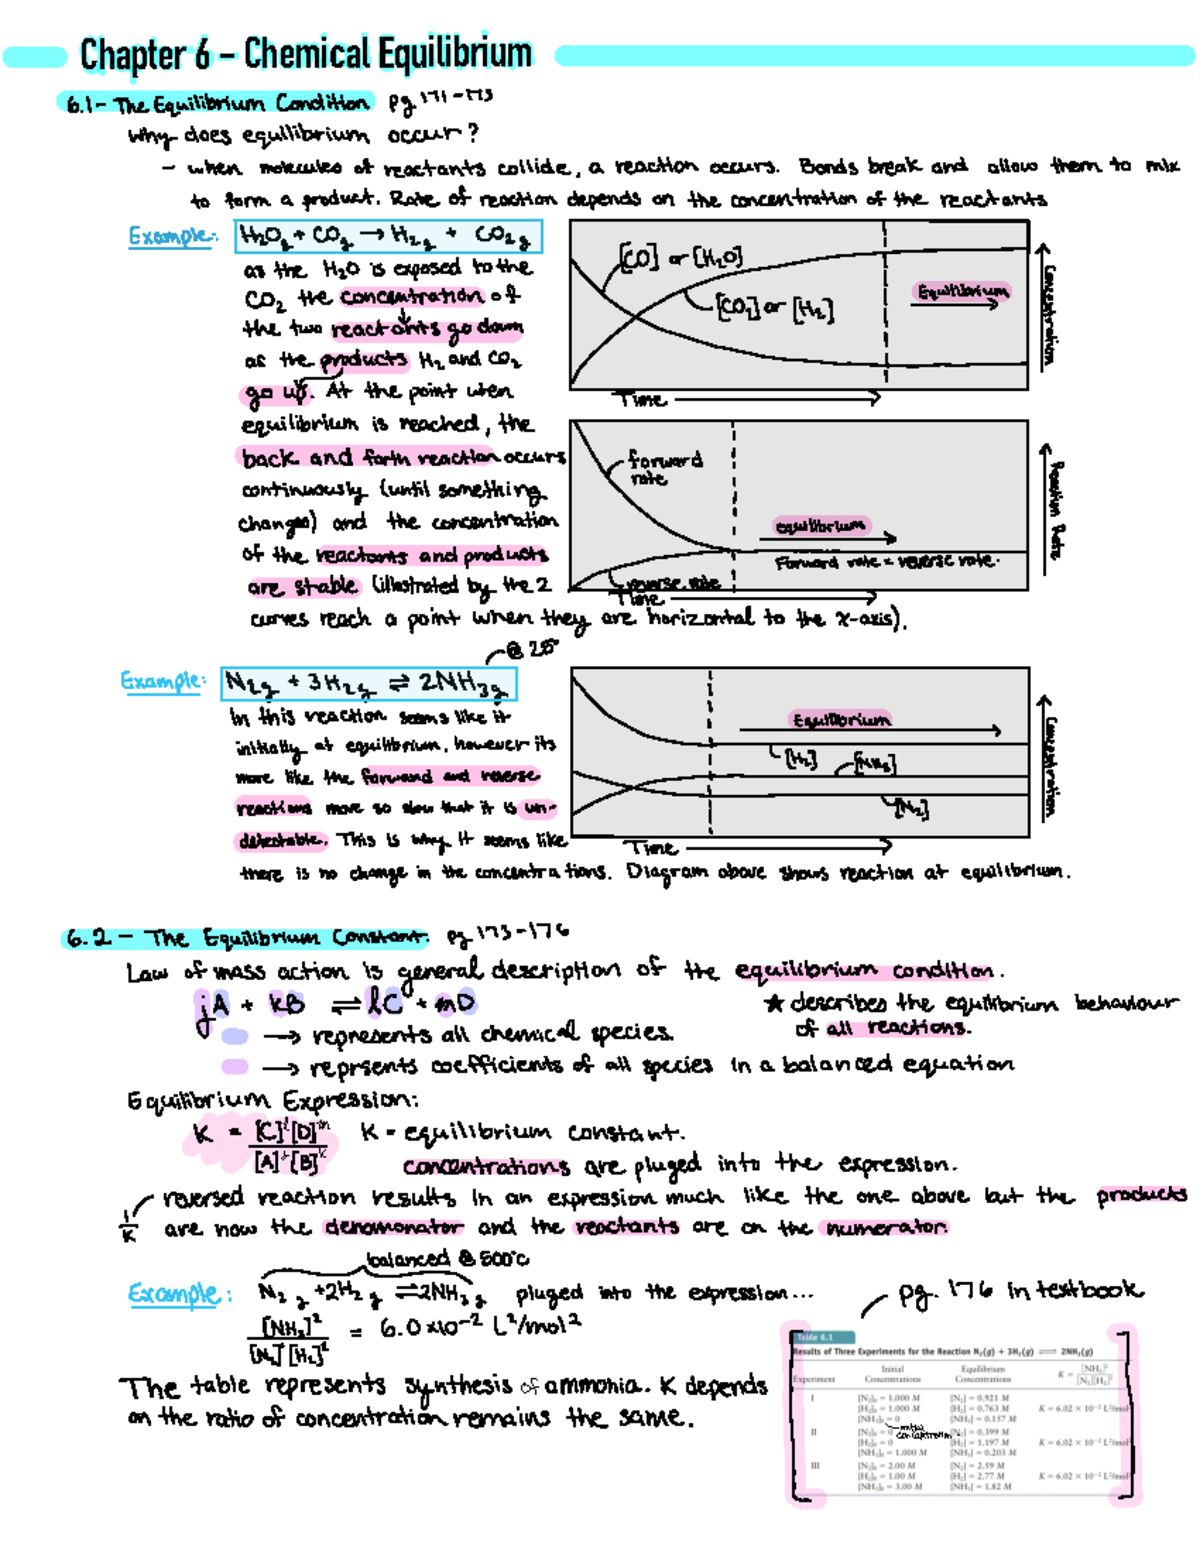 Chapter 6 – Chemical Equilibrium
6.1 – The Equilibrium Condition pg 171-173
Why does equilibrium occur?
– when molecules of reactants collide, a reaction occurs. Bonds break and allow them to mix
to form a product. Rate of reaction depends on the concentration of the reactants
Example: H₂Og + COg → H₂g + CO₂g
as the H₂O is exposed to the
CO₂ the concentration of
the two reactants go down
as the products H₂ and CO₂
go up. At the point when
equilibrium is reached, the
back and forth reaction occurs
continuously (until something
changes) and the concentration
of the reactants and products
are stable (illustrated by the 2
curves reach a point when they are horizontal to the x-axis).
[CO] or [H₂O]
[CO₂] or [H₂]
Equilibrium
Concentration
Time
forward
rate
equilibrium
Forward rate = reverse rate.
reverse rate
Reaction Rate
Time
@ 25°
Example: N₂g + 3H₂g ⇌ 2NH₃g
In this reaction seems like it
initially at equilibrium, however its
more like the forward and reverse
reactions move so slow that it is un-
detectable. This is why it seems like
there is no change in the concentrations. Diagram above shows reaction at equilibrium.
Equilibrium
[H₂]
[NH₃]
[N₂]
Concentration
Time
6.2 – The Equilibrium Constant. pg 173-176
Law of mass action is general description of the equilibrium condition.
jA + kB ⇌ lC + mD
★ describes the equilibrium behaviour
of all reactions.
→ represents all chemical species.
→ reprsents coefficients of all species in a balanced equation
Equilibrium Expression:
K = [C]ˡ[D]ᵐ
[A]ʲ[B]ᵏ
K = equilibrium constant.
concentrations are pluged into the expression.
reversed reaction results in an expression much like the one above but the products
1/K are now the denomonator and the reactants are on the numerator.
balanced @ 500°C
Example: N₂g + 2H₂g ⇌ 2NH₃g pluged into the expression...
[NH₃]² = 6.0 x10⁻² L²/mol²
[N₂] [H₂]³
The table represents synthesis of ammonia. K depends
on the ratio of concentration remains the same.
pg. 176 in textbook
Table 6.1
Results of Three Experiments for the Reaction N₂(g) + 3H₂(g) ⇌ 2NH₃(g)
Experiment Initial Concentrations Equilibrium Concentrations K = [NH₃]² / [N₂][H₂]³
I [N₂]₀ = 1.000 M [N₂] = 0.921 M
[H₂]₀ = 1.000 M [H₂] = 0.763 M K = 6.02 × 10⁻² L²/mol²
[NH₃]₀ = 0 [NH₃] = 0.157 M
initial
concentration
II [N₂]₀ = 0 [N₂] = 0.399 M
[H₂]₀ = 0 [H₂] = 1.197 M K = 6.02 × 10⁻² L²/mol²
[NH₃]₀ = 1.000 M [NH₃] = 0.203 M
III [N₂]₀ = 2.00 M [N₂] = 2.59 M
[H₂]₀ = 1.00 M [H₂] = 2.77 M K = 6.02 × 10⁻² L²/mol²
[NH₃]₀ = 3.00 M [NH₃] = 1.82 M